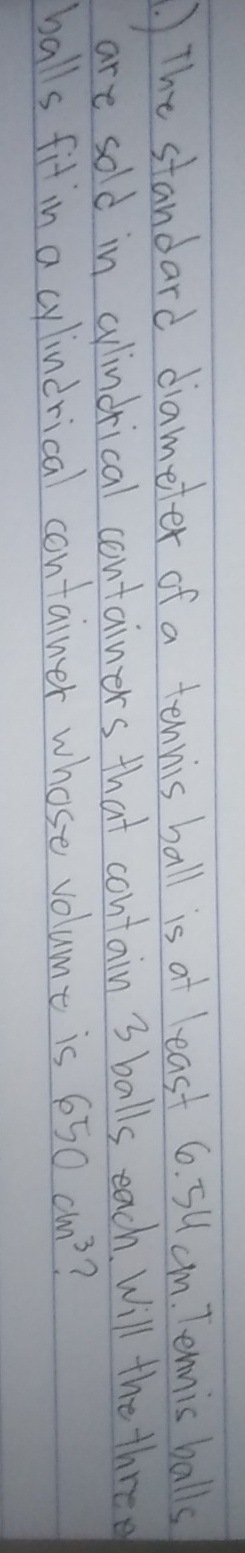 1.) The standard diameter of a tennis ball is at least 6.54 cm. Tennis balls
are sold in cylindrical containers that contain 3 balls each. Will the three
balls fit in a cylindrical container whose volume is 650 cm³?